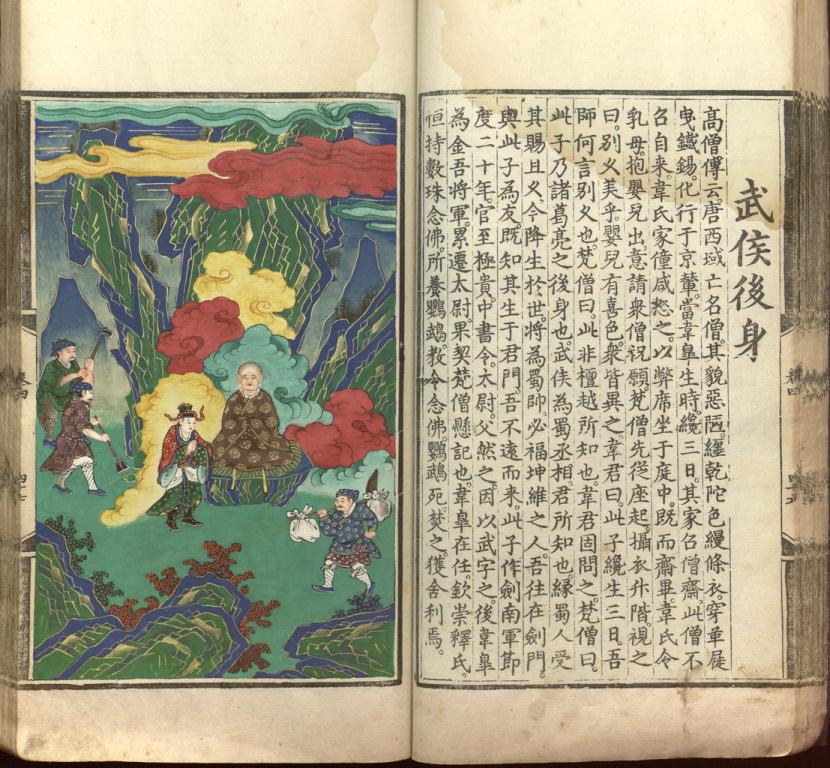 武侯後身
高僧傳云。唐西域亡名僧。其貌惡陋。纏乾陀色縵條衣。穿革屣
曳鐵錫。化行于京輦。當韋臯生時。纔三日。其家召僧齋。此僧不
召自來。韋氏家僮咸怒之。以弊席坐于庭中。既而齋畢。韋氏令
乳母抱嬰兒出。意請衆僧祝願。梵僧先從座起。攝衣升階。視之
曰。別久美乎。嬰兒有喜色。衆皆異之。韋君曰。此子纔生三日。吾
師何言別久也。梵僧曰。此非檀越所知也。韋君固問之。梵僧曰。
此子乃諸葛亮之後身也。武侯為蜀丞相。君所知也。緣蜀人受
其賜且久。今降生於世。將為蜀帥。必福坤維之人。吾往在劍門。
與此子為友。既知其生于君門。吾不遠而來。此子作劍南軍節
度二十年。官至極貴。中書令。太尉。父然之。因以武字之。後韋臯
為金吾將軍。累遷太尉。果契梵僧懸記也。韋臯在任。欽崇釋氏。
恒持數珠念佛。所養鸚鵡。教令念佛。鸚鵡死焚之。獲舍利焉。